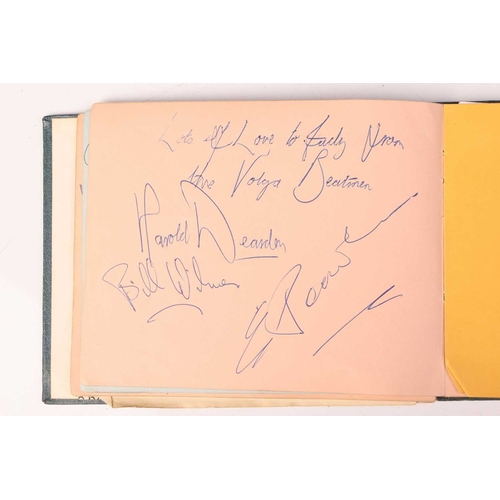 Lots of Love to Judy from
the Volga Boatmen
Harold Dearden
Bill Wilmer